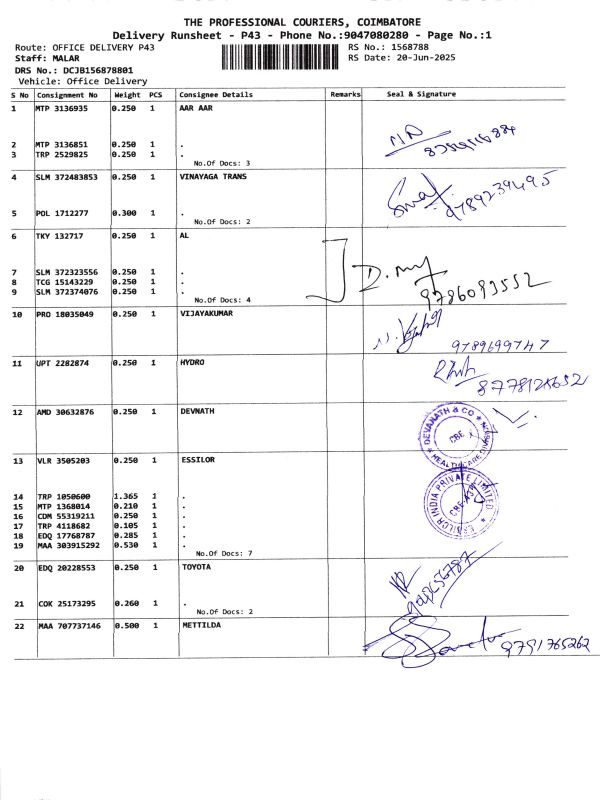 THE PROFESSIONAL COURIERS, COIMBATORE
Delivery Runsheet - P43 - Phone No.:9047080280 - Page No.:1
Route: OFFICE DELIVERY P43 RS No.: 1568788
Staff: MALAR RS Date: 20-Jun-2025
DRS No.: DCJB156878801
Vehicle: Office Delivery
S No Consignment No Weight PCS Consignee Details Remarks Seal & Signature
1 MTP 3136935 0.250 1 AAR AAR
2 MTP 3136851 0.250 1 .
3 TRP 2529825 0.250 1 .
No.Of Docs: 3
4 SLM 372483853 0.250 1 VINAYAGA TRANS
9789239495
5 POL 1712277 0.300 1 .
No.Of Docs: 2
6 TKY 132717 0.250 1 AL
7 SLM 372323556 0.250 1 .
8 TCG 15143229 0.250 1 .
9 SLM 372374076 0.250 1 .
9786093552
No.Of Docs: 4
10 PRO 18035049 0.250 1 VIJAYAKUMAR
9789699747
11 UPT 2282874 0.250 1 HYDRO
12 AMD 30632876 0.250 1 DEVNATH
DEVANATH & CO
HEALTHCARE DIVISION
CBE
13 VLR 3505203 0.250 1 ESSILOR
ESSILOR INDIA PRIVATE LIMITED
14 TRP 1050600 1.365 1 .
15 MTP 1368014 0.210 1 .
16 COM 55319211 0.250 1 .
17 TRP 4118682 0.105 1 .
18 EDQ 17768787 0.285 1 .
19 MAA 303915292 0.530 1 .
No.Of Docs: 7
20 EDQ 20228553 0.250 1 TOYOTA
21 COK 25173295 0.260 1 .
No.Of Docs: 2
22 MAA 707737146 0.500 1 METTILDA
9791765262